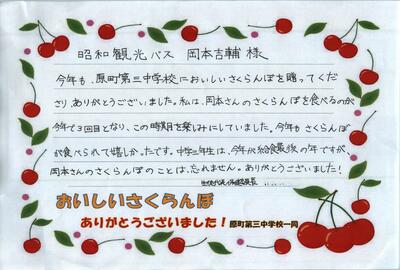 昭和観光バス 岡本吉輔様
今年も、原町第三中学校においしいさくらんぼを贈ってくだ
さりありがとうございました。私は、岡本さんのさくらんぼを食べるのが
今年で3回目となり、この時期を楽しみにしていました。今年もさくらんぼ
が食べられて嬉しかったです。中学三年生は、今年が給食最後の年ですが、
岡本さんのさくらんぼのことは、忘れません。ありがとうございました!
おいしいさくらんぼ
ありがとうございました!原町第三中学校一同